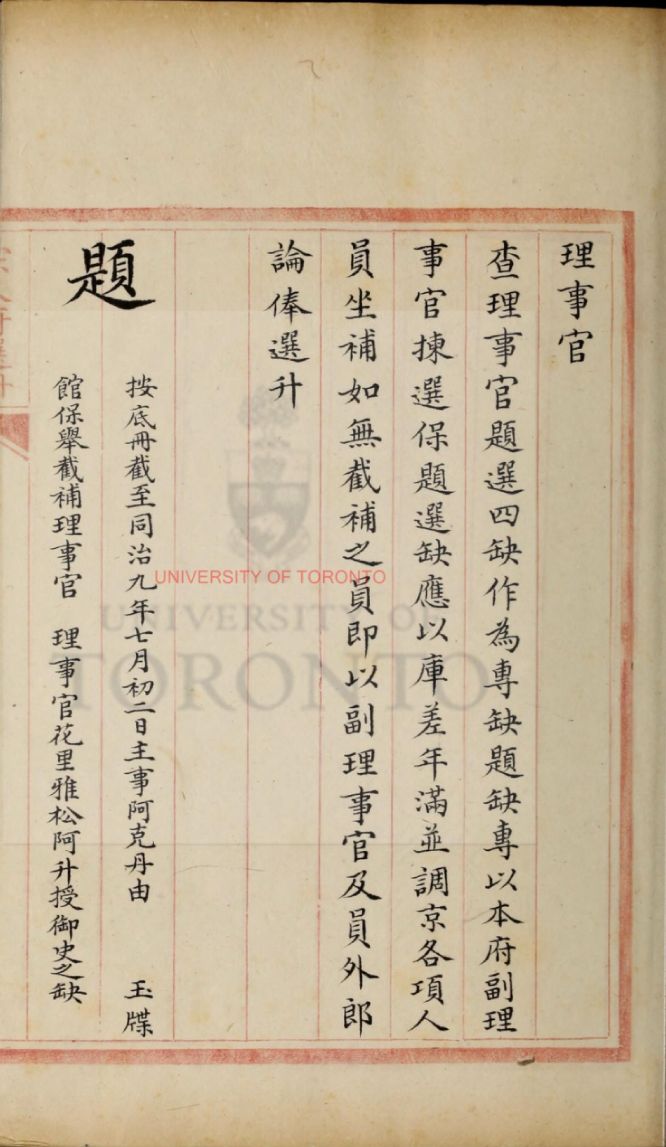 理事官
查理事官題選四缺作為專缺題缺專以本府副理
事官揀選保題選缺應以庫差年滿並調京各項人
員坐補如無截補之員即以副理事官及員外郎
論俸選升
題
按底冊截至同治九年七月初二日主事阿克丹由 玉牒
館保舉截補理事官 理事官花里雅松阿升授御史之缺
UNIVERSITY OF TORONTO
UNIVERSITY OF
TORONTO